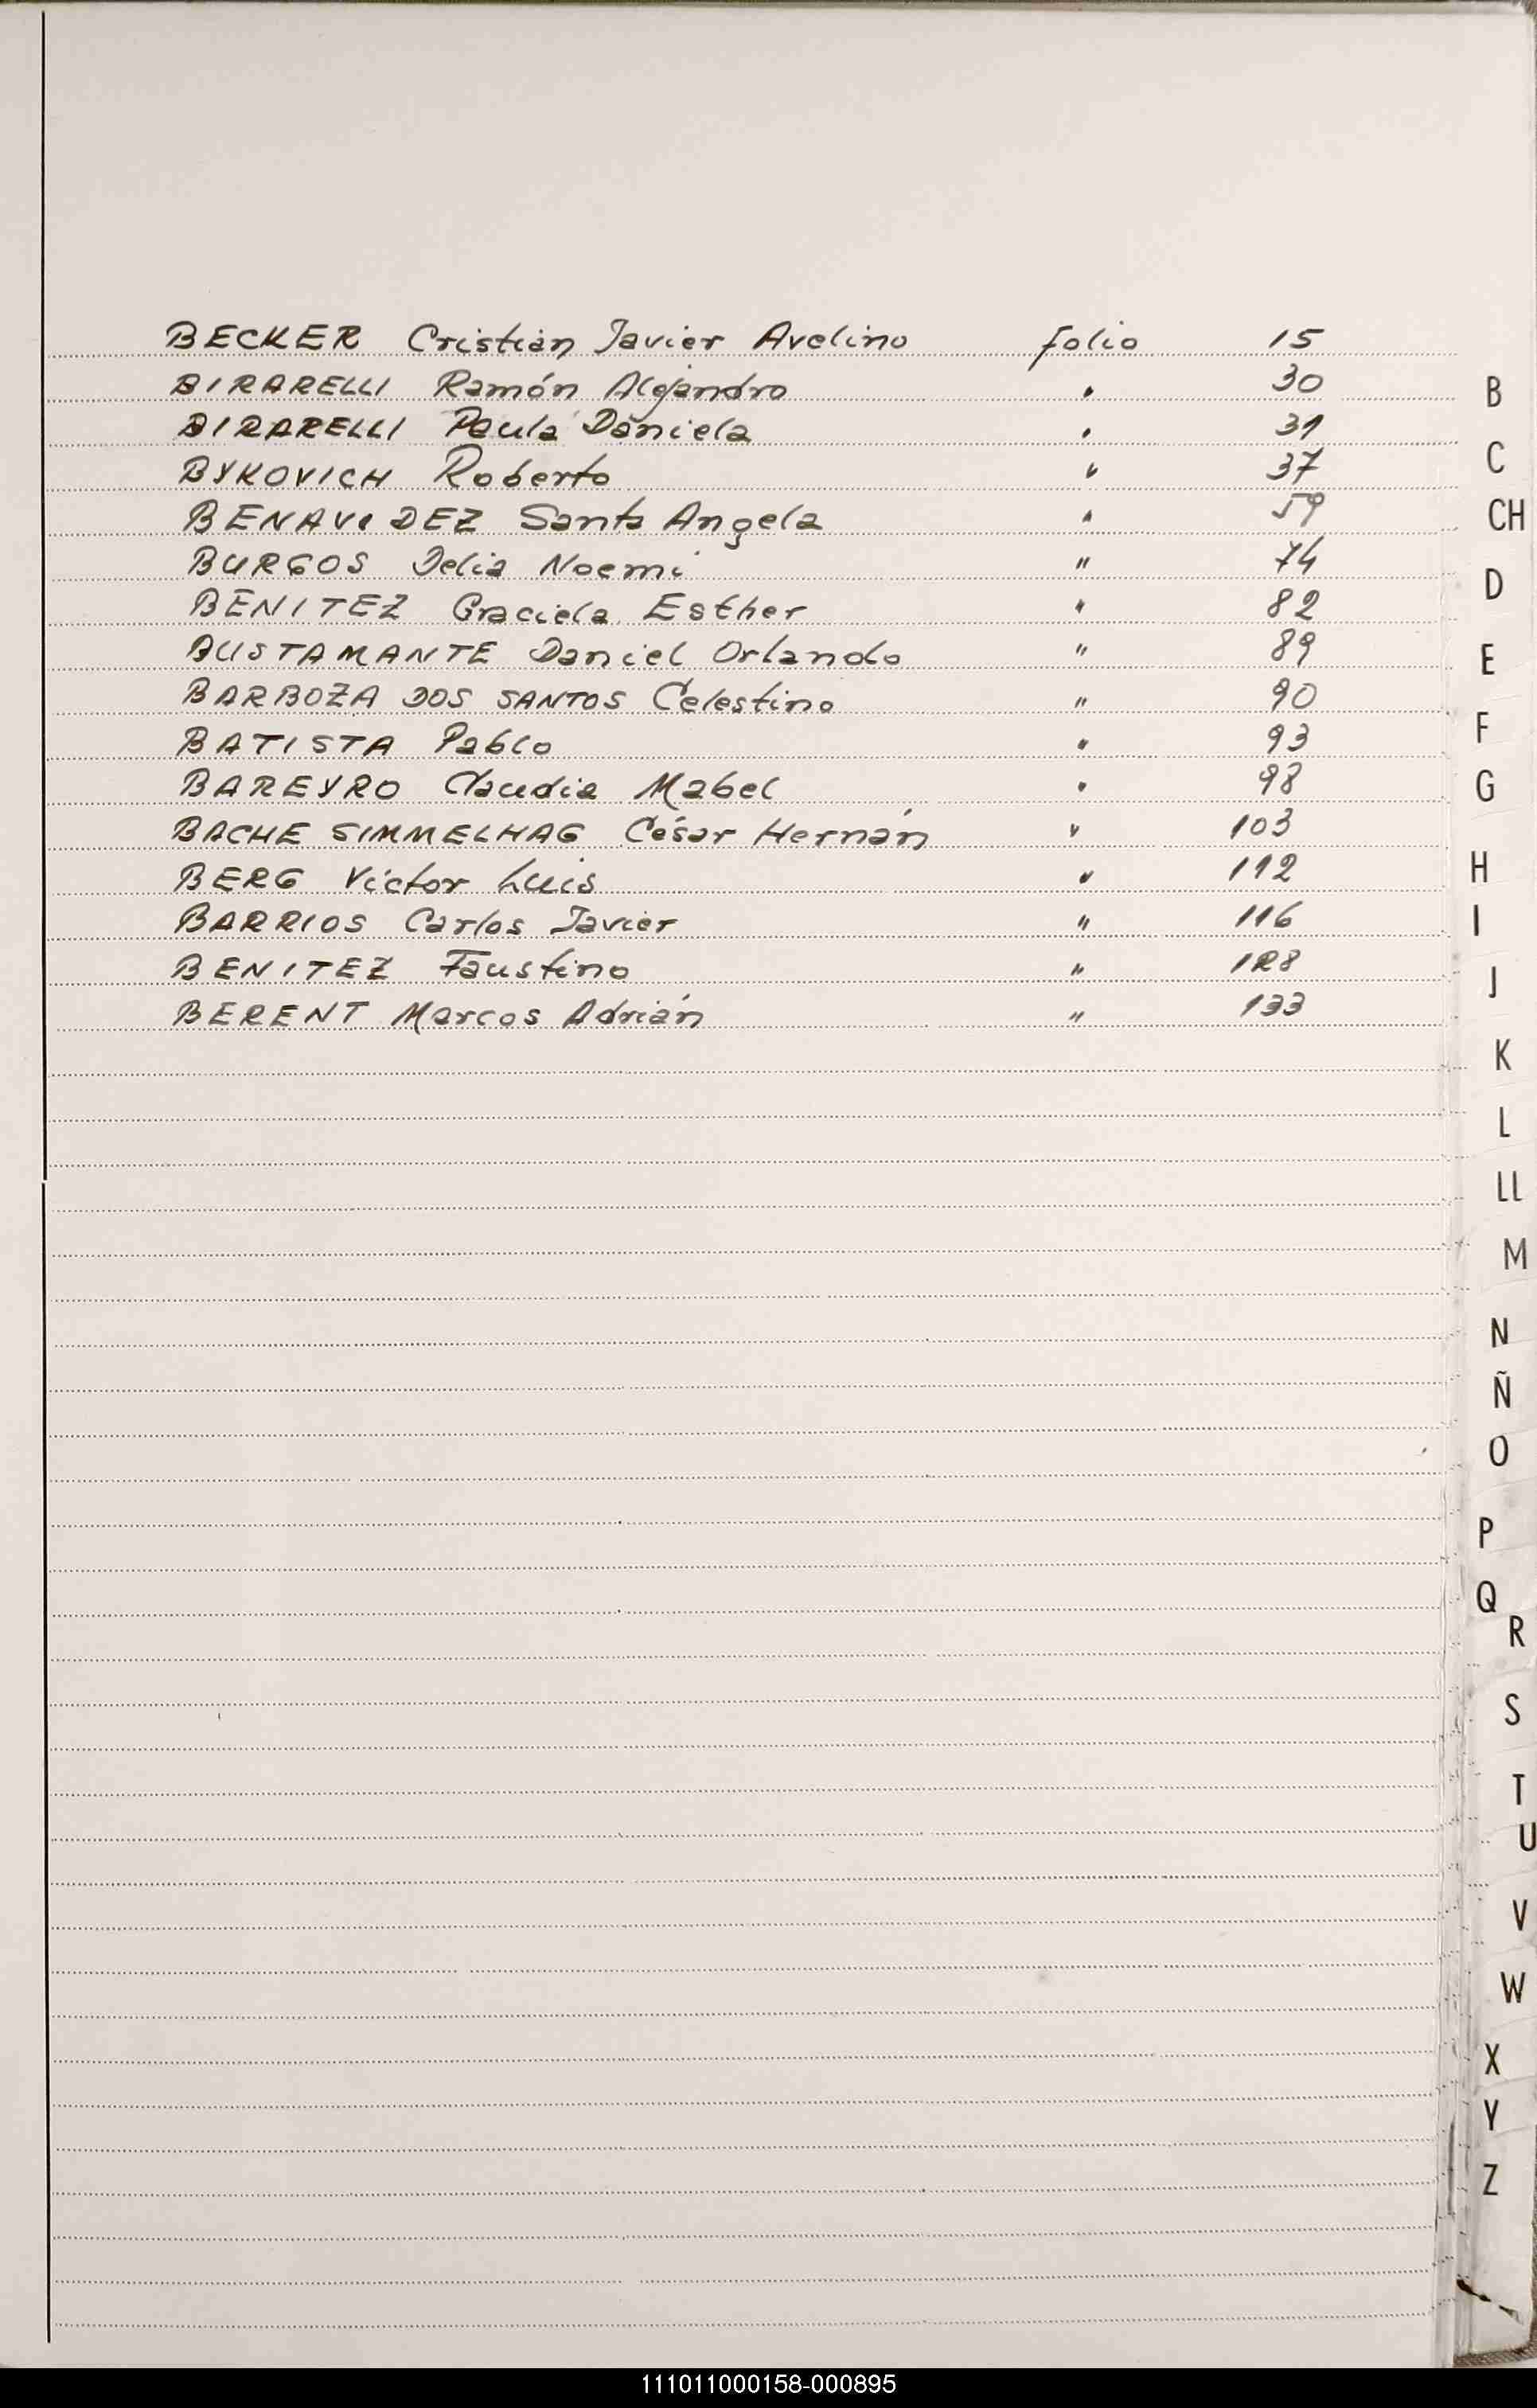 BECKER Cristián Javier Avelino folio 15
BIRARELLI Ramón Alejandro " 30
BIRARELLI Paula Daniela " 31
BYKOVICH Roberto " 37
BENAVIDEZ Santa Angela " 59
BURGOS Delia Noemi " 74
BENITEZ Graciela Esther " 82
BUSTAMANTE Daniel Orlando " 89
BARBOZA DOS SANTOS Celestino " 90
BATISTA Pablo " 93
BAREYRO Claudia Mabel " 98
BACHE SIMMELHAG César Hernán " 103
BERG Victor Luis " 112
BARRIOS Carlos Javier " 116
BENITEZ Faustino " 128
BERENT Marcos Adrián " 133
B
C
CH
D
E
F
G
H
I
J
K
L
LL
M
N
Ñ
O
P
Q
R
S
T
U
V
W
X
Y
Z
111011000158-000895